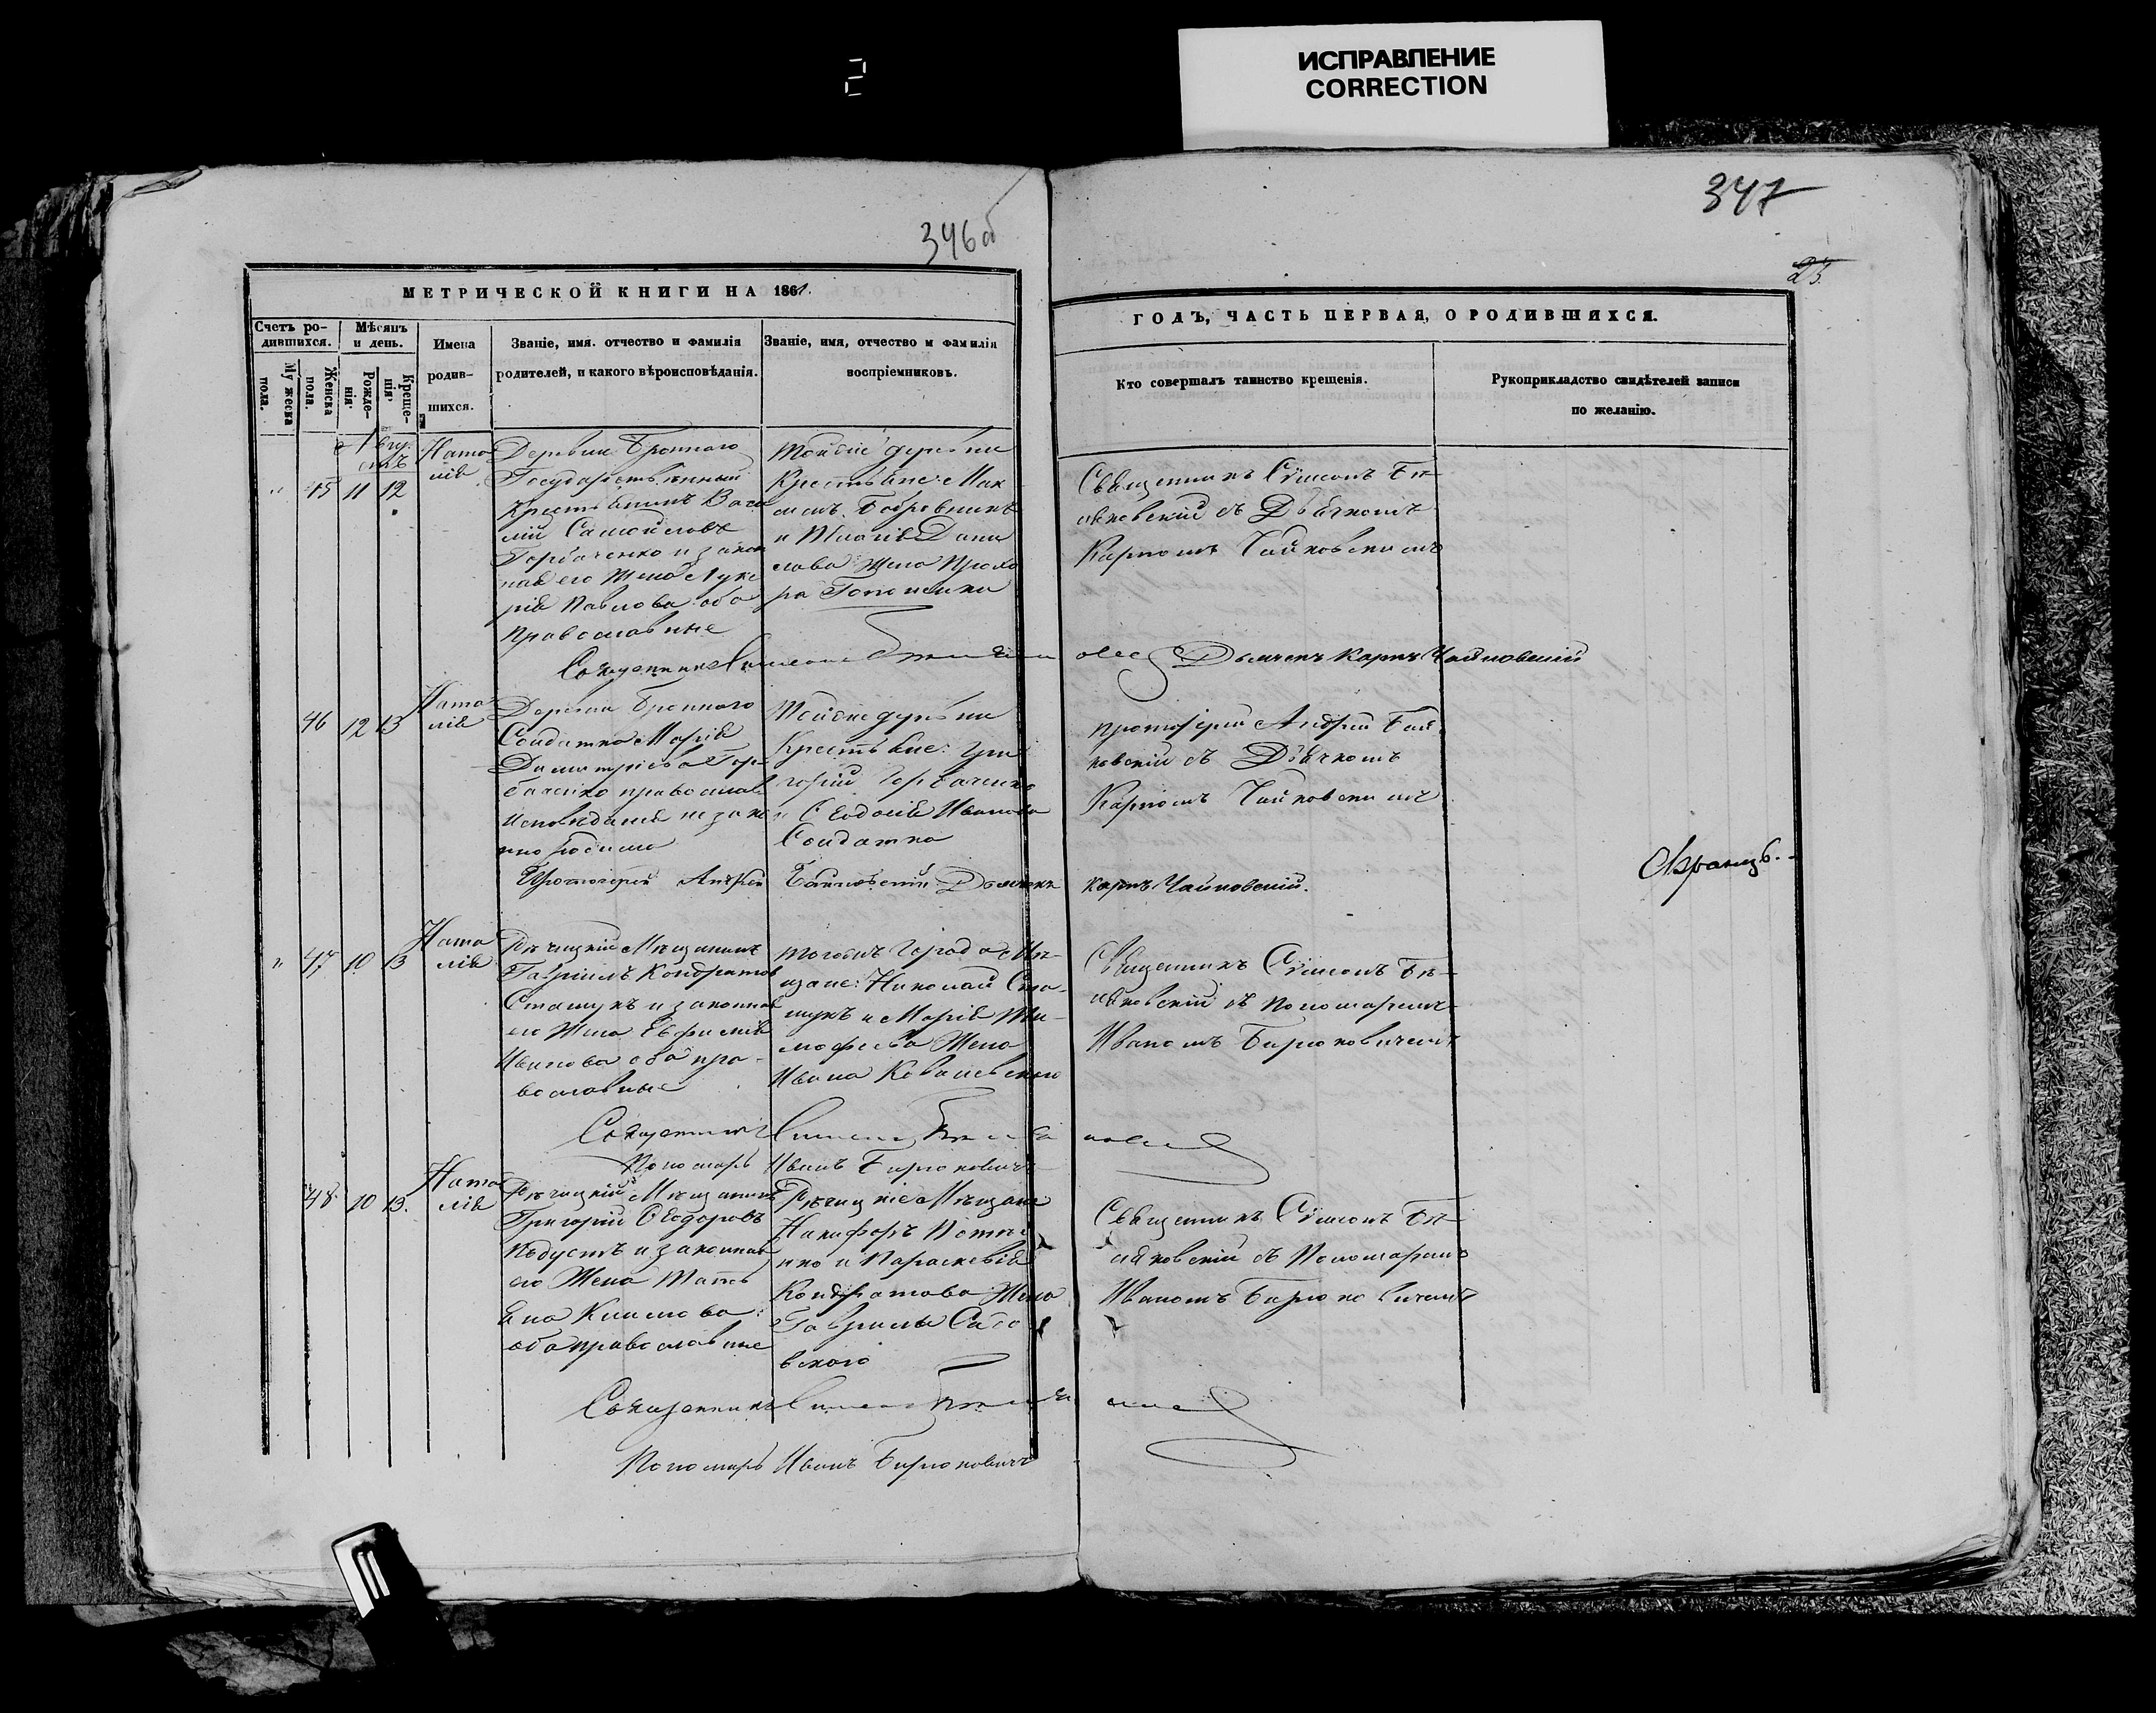 ИСПРАВЛЕНИЕ
CORRECTION
2
346 об
347
25.
МЕТРИЧЕСКОЙ КНИГИ НА 1861.
ГОДЪ, ЧАСТЬ ПЕРВАЯ, О РОДИВШИХСЯ.
Счетъ ро-
дившихся.
Мѣсяцъ
и день.
Мужеска
пола.
Женска
пола.
Рожде-
нія.
Креще-
нія.
Имена
родив-
шихся.
Званіе, имя. отчество и фамилія
родителей, и какого вѣроисповѣданія.
Званіе, имя, отчество и фамилія
воспріемниковъ.
Кто совершалъ таинство крещенія.
Рукоприкладство свидѣтелей записи
по желанію.
Авгу-
стъ
" 45 11 12
Ната
лія
Деревни Бронного
Государственный
Крестьянинъ Васи
лій Самойловъ
Горбаченко и закон
ная его Жена Луке
рія Павлова оба
Православные
Тойже деревни
Крестьяне: Мак
симъ Бобровникъ
и Дани
лова Жена Прохо
ра
Священникъ Сѵмеонъ Бѣ-
ляновскій съ Дьячкомъ
Карпомъ Чайковскимъ
Священникъ Симеонъ
Дьячекъ Карпъ Чайковскій
46 12 13
Ната
лія
Деревни Бронного
Солдатка Марія
Димитріева Гор-
баченко православ
исповѣданія незако
нно
Тойже деревни
Крестьяне: Гри
горій Горбаченко
и Ѳеодосія Иванова
Солдатка
Протоіерей Андрей
съ Дьячкомъ
Карпомъ Чайковскимъ
Протоіерей Андрей
Дьячекъ
Карпъ Чайковскій.
" 47 10 13
Ната
лія
Рѣчицкій Мѣщанинъ
Гавріилъ Кондратовъ
Сташукъ и законная
его Жена Евфимія
Иванова оба пра-
вославные
тогожъ города Мѣ-
щане: Николай Ста-
шукъ и Марія Ти-
мофеева Жена
Ивана Ковалевского
Священникъ Сѵмеонъ Бѣ-
ляновскій съ Пономаремъ
Иваномъ Бирюковичемъ
Священникъ Симеонъ
Пономарь Иванъ Бирюковичъ
48 10 13.
Ната
лія
Рѣчицкій Мѣщанинъ
Григорій Ѳеодоровъ
и законная
его Жена Тать
яна Климова
оба православные
Рѣчицкіе Мѣщане
Никифоръ
и Параскевія
Кондратова Жена
Гавріила Садо
вского
Священникъ Сѵмеонъ Бѣ-
ляновскій съ Пономаремъ
Иваномъ Бирюковичемъ
Священникъ Симеонъ
Пономарь Иванъ Бирюковичъ